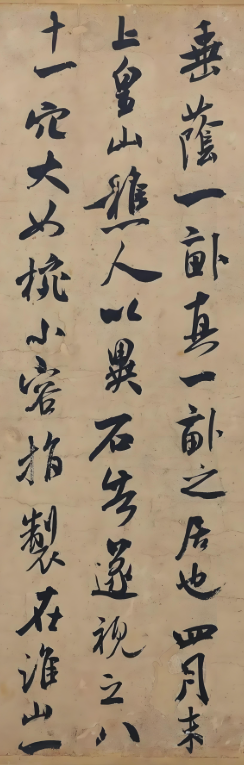 垂蔭一畝真一畝之居也四月末
上皇山樵人以異石告遂視之八
十一穴大如椀小容指製在淮山一